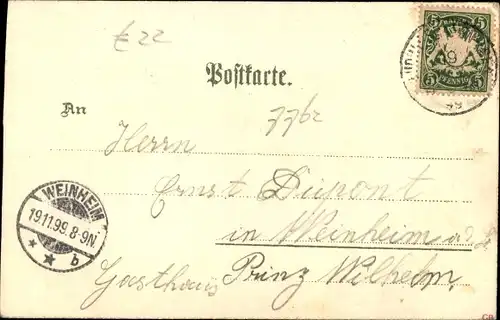 £ 22
5 BAYERN 5
5 PFENNIG 5
Postkarte.
7762
An
Herrn
Ernst Dupont
in Weinheim a. d. B.
Gasthaus Prinz Wilhelm.
WEINHEIM
19.11.99. 8-9N.
* * b